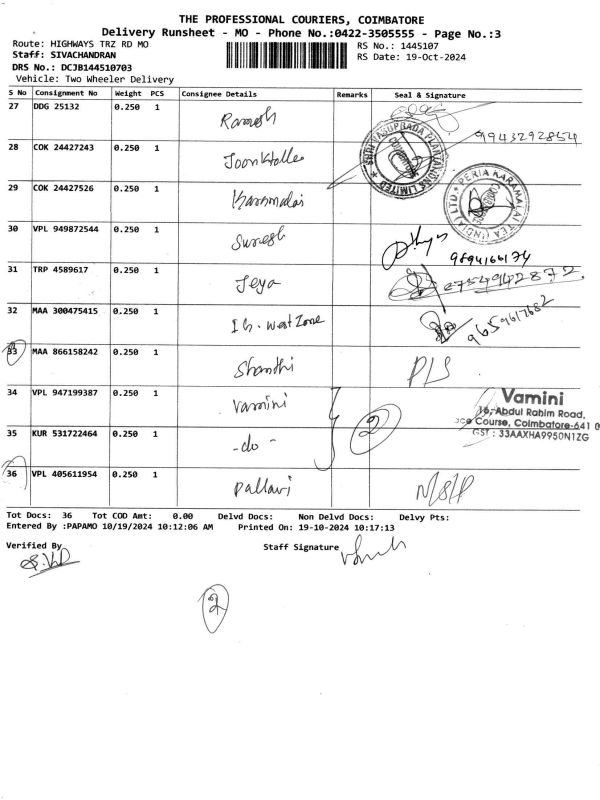 THE PROFESSIONAL COURIERS, COIMBATORE
Delivery Runsheet - MO - Phone No.:0422-3505555 - Page No.:3
Route: HIGHWAYS TRZ RD MO RS No.: 1445107
Staff: SIVACHANDRAN RS Date: 19-Oct-2024
DRS No.: DCJB144510703
Vehicle: Two Wheeler Delivery
S No Consignment No Weight PCS Consignee Details Remarks Seal & Signature
27 DDG 25132 0.250 1 Ramesh 9943292854
28 COK 24427243 0.250 1
29 COK 24427526 0.250 1 Karamalai
PERIA KARAMALAI TEA (INDIA) LTD.
30 VPL 949872544 0.250 1 Suresh 9894166174
31 TRP 4589617 0.250 1 Jeya 8754942872
32 MAA 300475415 0.250 1 IG. West Zone 9659617682
33 MAA 866158242 0.250 1 Shanthi P/S
34 VPL 947199387 0.250 1 Vamini 2
Vamini
16, Abdul Rahim Road,
Course, Coimbatore-641 0
GST : 33AAXHA9950N1ZG
35 KUR 531722464 0.250 1 -do-
36 VPL 405611954 0.250 1 Pallavi N/S/P
Tot Docs: 36 Tot COD Amt: 0.00 Delvd Docs: Non Delvd Docs: Delvy Pts:
Entered By :PAPAMO 10/19/2024 10:12:06 AM Printed On: 19-10-2024 10:17:13
Verified By Staff Signature
2